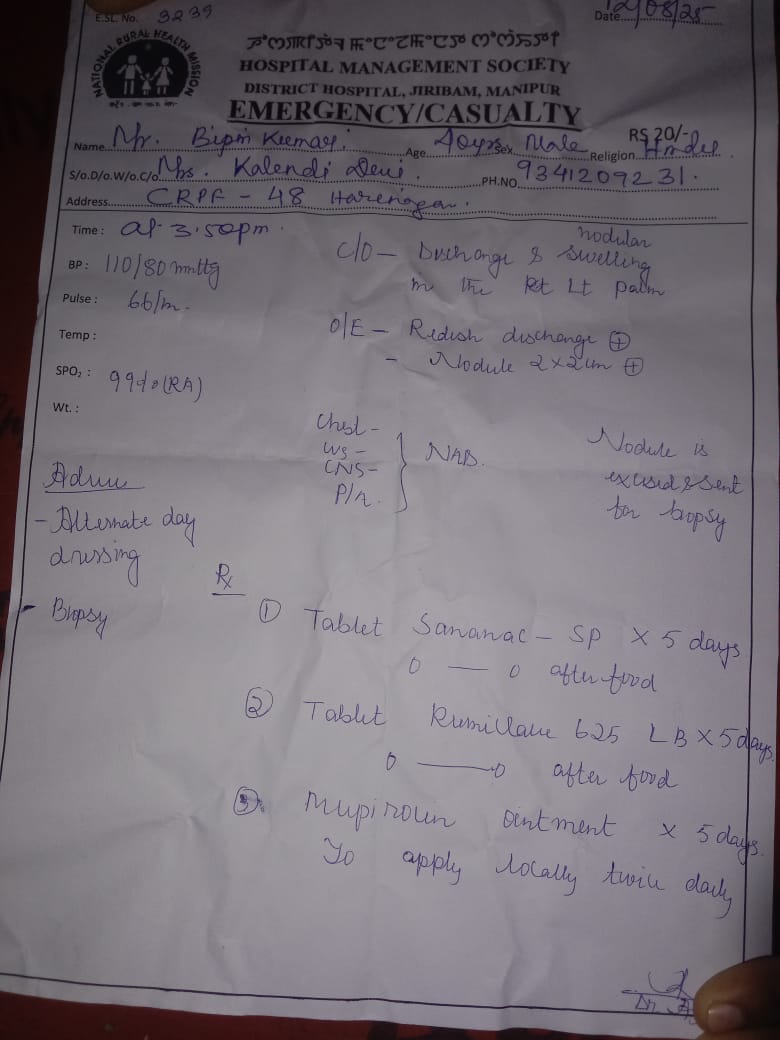 E.SL. No. 3239
Date 12/08/25
NATIONAL RURAL HEALTH MISSION
HOSPITAL MANAGEMENT SOCIETY
DISTRICT HOSPITAL, JIRIBAM, MANIPUR
EMERGENCY/CASUALTY
RS 20/-
Name Mr. Bipin Kumar. Age 40yrs Sex Male Religion Hindu
S/o.D/o.W/o.C/o Mrs. Kalendi Devi. PH.NO 9341209231.
Address CRPF - 48 Harinagar.
Time : at 3.50pm.
BP : 110/80 mmHg
Pulse : 66/m.
Temp :
SPO₂ : 99%(RA)
Wt. :
C/O - Discharge & nodular swelling
in the Lt palm
O/E - Redish discharge ⊕
- Nodule 2x2cm ⊕
Chest -
CNS -
P/A.
NAD.
Nodule is
excised & sent
for biopsy
- Alternate day
dressing
- Biopsy
Rx
① Tablet Sananac - SP X 5 days
0 — 0 after food
② Tablet 625 LB X 5 days.
0 — 0 after food
③ Mupirocin ointment x 5 days.
To apply locally twice daily
Dr.